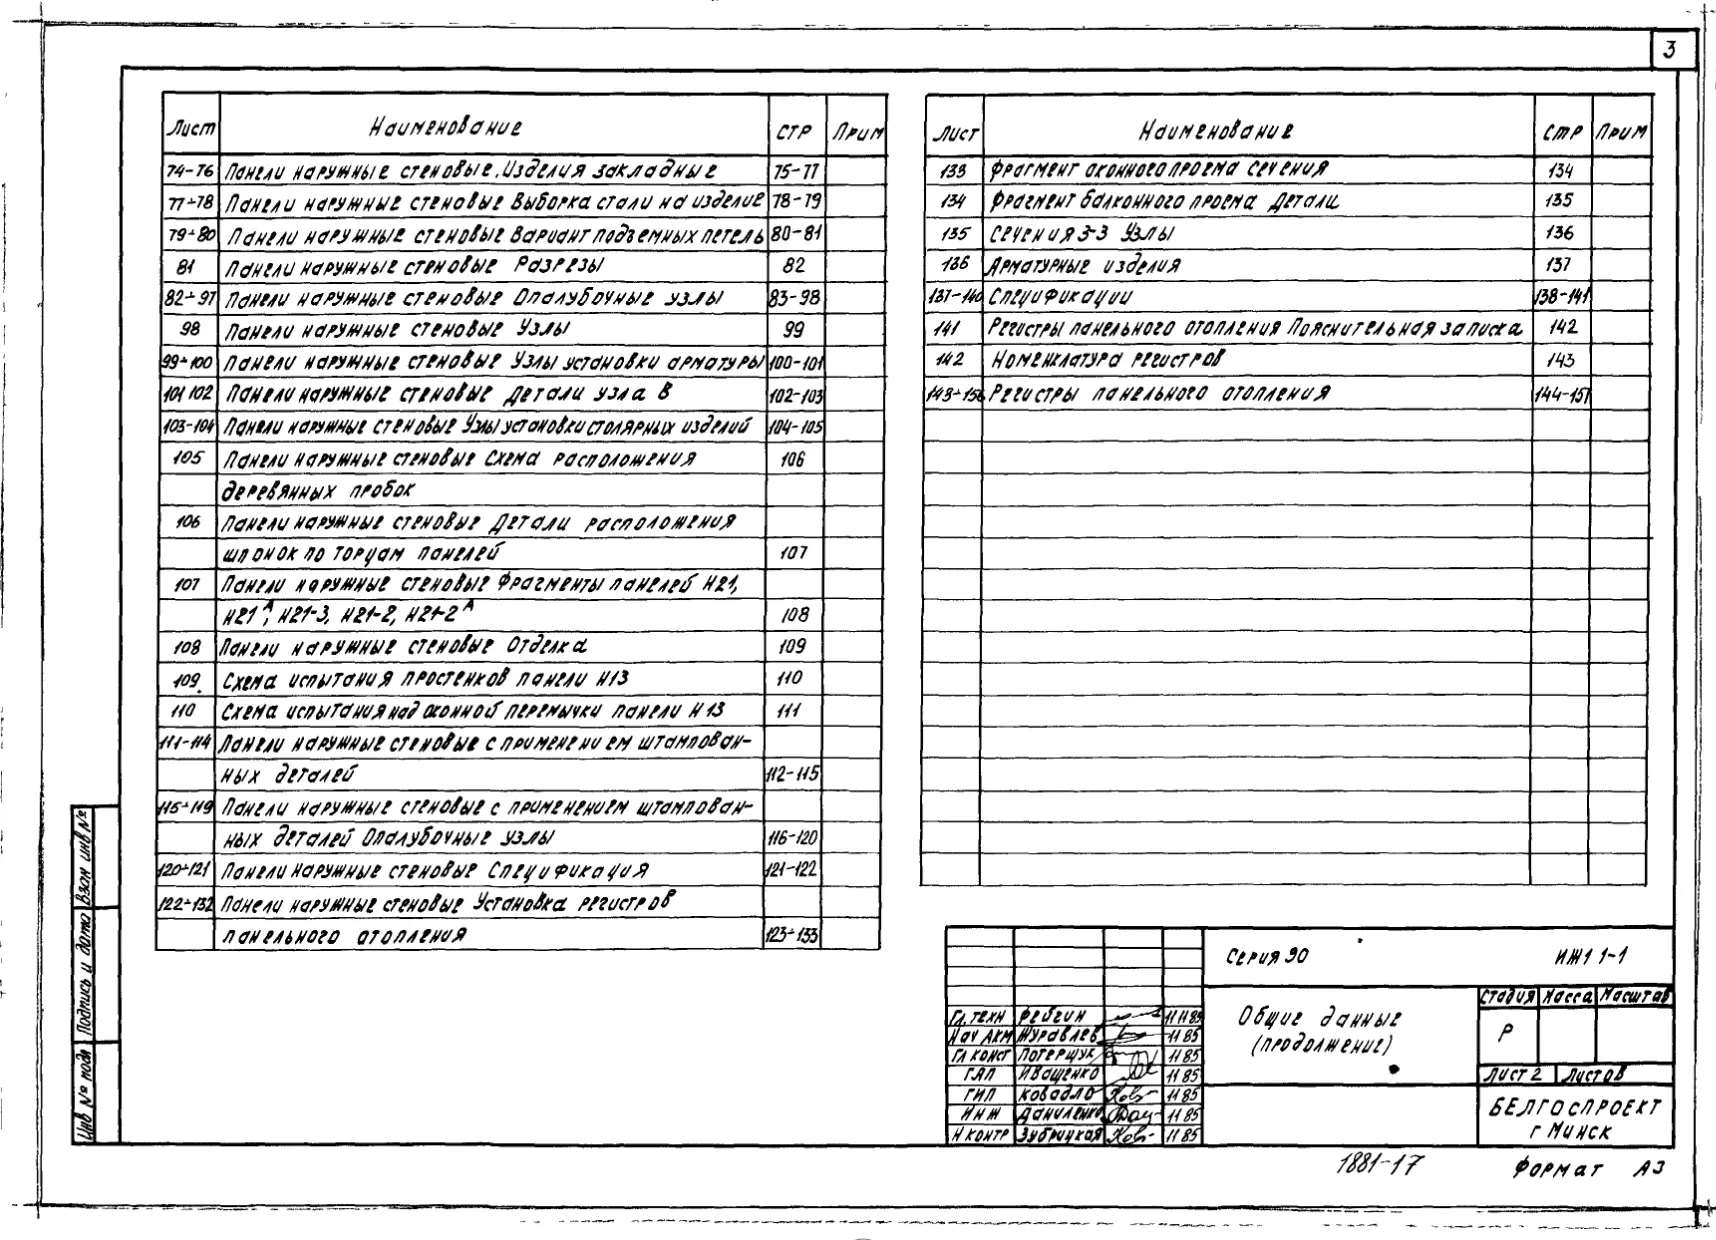 3
Лист Наименование стр Прим
74-76 Панели наружные стеновые. Изделия закладные 75-77
77÷78 Панели наружные стеновые Выборка стали на изделие 78-79
79÷80 Панели наружные стеновые Вариант подъемных петель 80-81
81 Панели наружные стеновые Разрезы 82
82÷97 Панели наружные стеновые Опалубочные узлы 83-98
98 Панели наружные стеновые Узлы 99
99÷100 Панели наружные стеновые Узлы установки арматуры 100-101
101 102 Панели наружные стеновые Детали узла В 102-103
103-104 Панели наружные стеновые Узлы установки столярных изделий 104-105
105 Панели наружные стеновые Схема расположения 106
деревянных пробок
106 Панели наружные стеновые Детали расположения
шпонок по торцам панелей 107
107 Панели наружные стеновые Фрагменты панелей Н21,
Н21ᴬ, Н21-3, Н21-2, Н21-2ᴬ 108
108 Панели наружные стеновые Отделка 109
109 Схема испытания простенков панели Н13 110
110 Схема испытания над оконной перемычки панели Н13 111
111-114 Панели наружные стеновые с применением штампован-
ных деталей 112-115
115÷119 Панели наружные стеновые с применением штампован-
ных деталей Опалубочные узлы 116-120
120÷121 Панели наружные стеновые Спецификация 121-122
122÷132 Панели наружные стеновые Установка регистров
панельного отопления 123÷133
Лист Наименование стр Прим
133 Фрагмент оконного проема сечения 134
134 Фрагмент балконного проема Детали 135
135 Сечения 3-3 Узлы 136
136 Арматурные изделия 137
137-140 Спецификации 138-141
141 Регистры панельного отопления Пояснительная записка 142
142 Номенклатура регистров 143
143÷156 Регистры панельного отопления 144-157
Инв № подл Подпись и дата Взам инв №
Серия 90 ИЖ1 1-1
Общие данные
(продолжение)
Стадия Масса Масштаб
Р
Лист 2 Листов
Гл. техн Фейгин 11 85
Нач АКМ Журавлев 11 85
Гл констр Потерщук 11 85
ГАП Иващенко 11 85
ГИП Ковадло 11 85
Инж Даниленко 11 85
Н контр Зубрицкая 11 85
БЕЛГОСПРОЕКТ
г Минск
1881-17 Формат А3